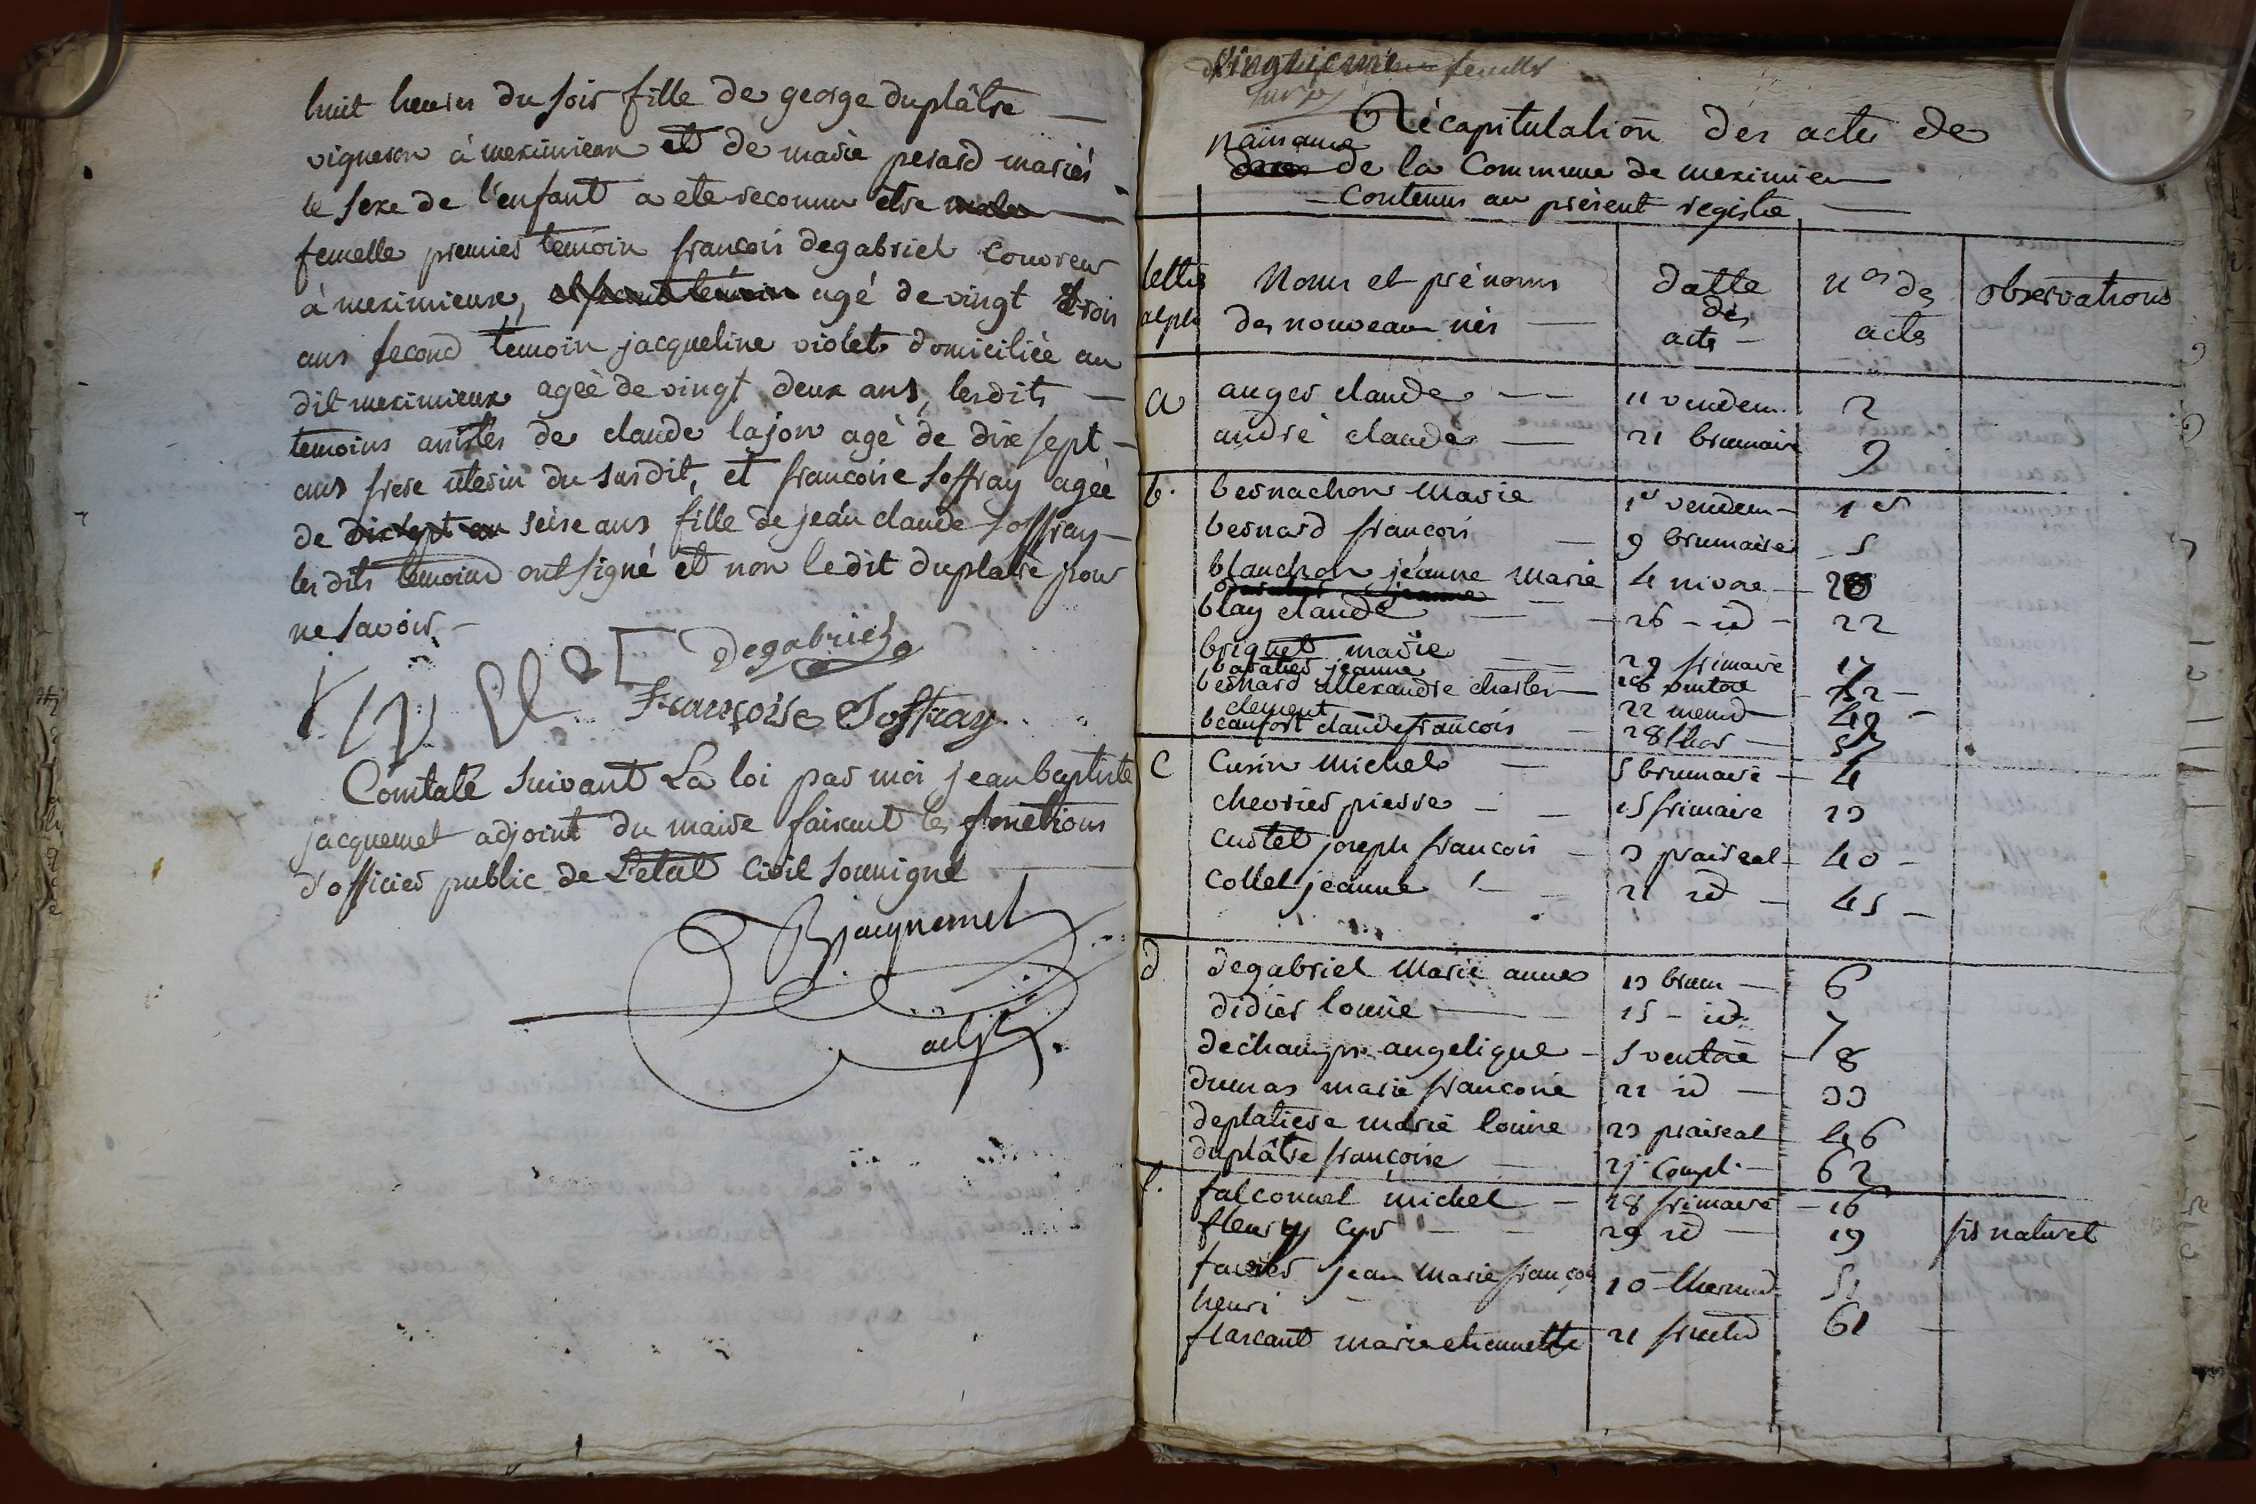 huit heures du soir fille de george duplâtre —
vigneron à meximieux et de marie perard mariés
le sexe de l'enfant a eté reconnu etre male
femelle premier temoin françois degabriel couvreur
à meximieux, agé de vingt trois
ans second temoin jacqueline violet domiciliée au
dit meximieux agée de vingt deux ans, lesdits —
temoins assistés de claude lajon agé de dix sept —
ans frere uterin du susdit, et francoise soffray agée
de dix sept ans seise ans fille de jean claude soffray —
les dits temoins ont signé et non ledit duplatre pour
ne savoir —
degabriel
Françoise Soffray
Constaté suivant La loi par moi jean baptiste
jacquemet adjoint du maire faisant les fonctions
d'officier public de Letat civil soussigné
Bjacquemet
adjt
feuillet
Récapitulation des actes de
naissance
de la Commune de meximieux
Contenus au présent registre
lettre Noms et prénoms datte nos de observations
alph des nouveau nés — des actes
actes —
a auger claude — — 11 vendem. 2
andré claude — 21 brumaire 9
b. bernachon Marie 1er vendem — 1er
bernard françois — 9 brumaire 5
blanchon jeanne Marie 4 nivose — 20
blay claude — 26 — id — 22
briquet marie — 29 frimaire 17
baratier jeanne 18 ventose 32 —
bernard allexandre charles — 22 messid — 49 —
clement
beaufort claude francois — 28 ther —
C Cusin Michel — 5 brumaire — 4
chevrier pierre — 15 frimaire 13
custet joseph francois — 3 praireal — 40 —
Collet jeanne — 21 id — 45 —
d degabriel Marie anne 13 brum — 6
didier louise — 15 — id. 7
dechamps angelique — 5 ventose — 8
dumas marie francoise 21 id — 33
deplatiere marie louise 23 praireal 46
duplâtre françoise — 2j. compl. — 62
f. falconnet michel — 28 frimaire — 16
fleury cyr — — 29 id — 19 fis naturel
favier jean Marie françois 10 thermid 51
henri —
flascant marie etiennette 21 fructid 61 —